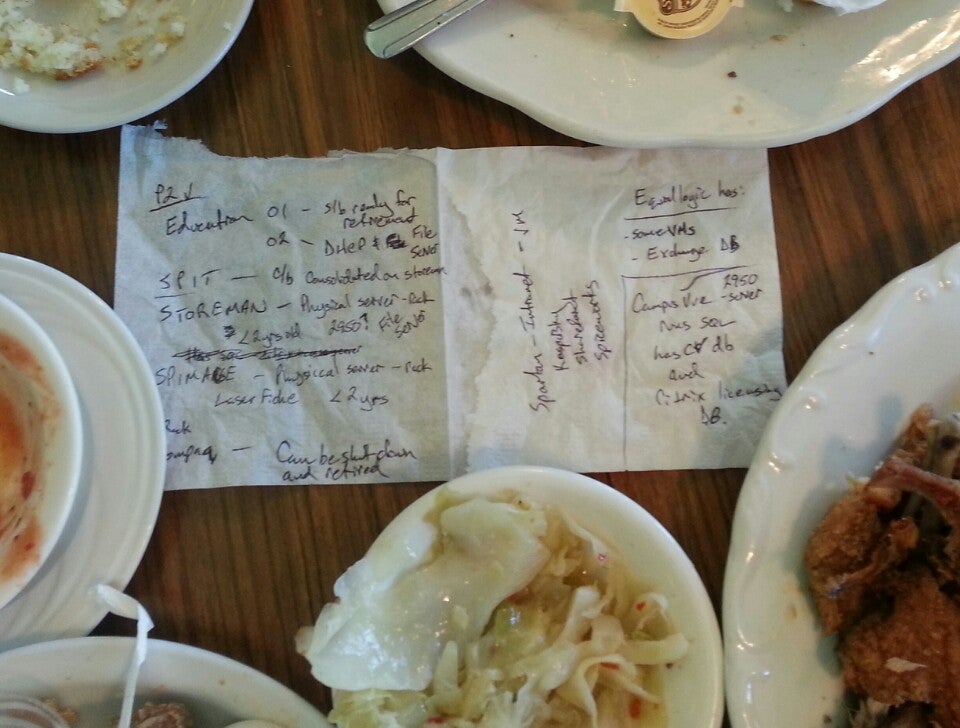 P2V
Education 01 - s/b ready for
retirement
02 - DHCP & File
Server
SPIT - c/b Consolidated on storeman
STOREMAN - Physical server - Rack
< 2 yrs old 2950? File
Serv
SPIMAGE - Physiccal server - rack
LaserFiche < 2 yrs
Rack
ompaq - Can be shut down
and retired
Spartan - Intranet - VM
Hospitality
Sharepoint
Spiceworks
Equallogic has:
- some VMs
- Exchange DB
Campus Vue 2950
- server
runs SQL
has CV db
and
Citrix licensing
DB.